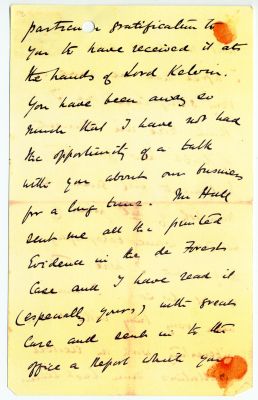 particular gratification to
you to have received it at
the hands of Lord Kelvin.
You have been away so
much that I have not had
the opportunity of a talk
with you about our business
for a long time. Mr Hall
sent me all the printed
Evidence in the de Forest
Case and I have read it
(especially yours) with great
care and sent in to the
office a Report which you